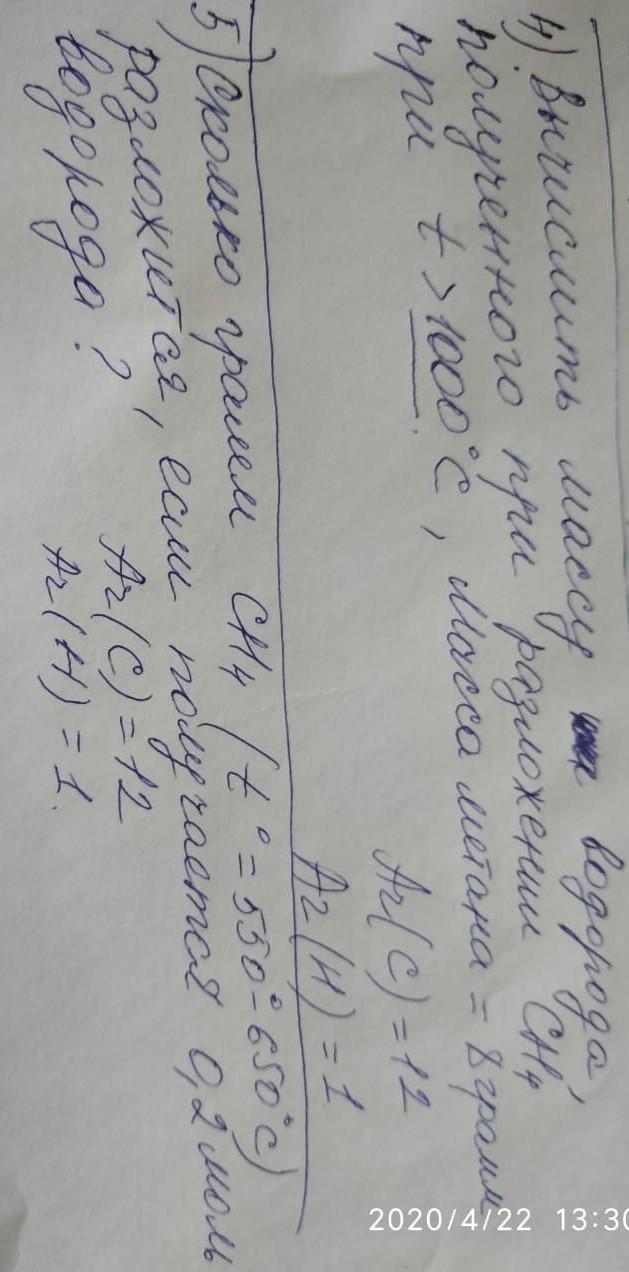 4) Вычислить массу водорода,
полученного при разложении CH₄
при t > 1000°C, Масса метана = 8 грамм
Ar(C) = 12
Ar(H) = 1
5) Сколько грамм CH₄ (t° = 550°-650°C)
разложится, если получается 0,2 моль
водорода?
Ar(C) = 12
Ar(H) = 1.
2020/4/22 13:30